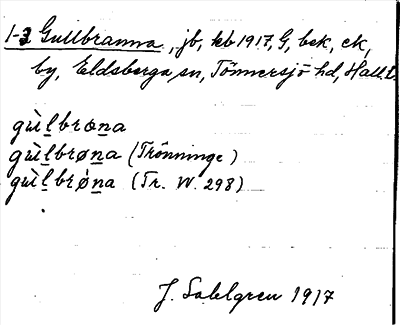 1-3 Gullbranna, jb, kb 1917, G, bek, ek,
by, Eldsberga sn, Tönnersjö hd, Hall. l.
gu̇̀l̲brøn̲a
gu̇̀l̲brøn̲a (Trönninge)
gu̇̀l̲brø̀n̲a (Tr. W. 298)
J. Sahlgren 1917